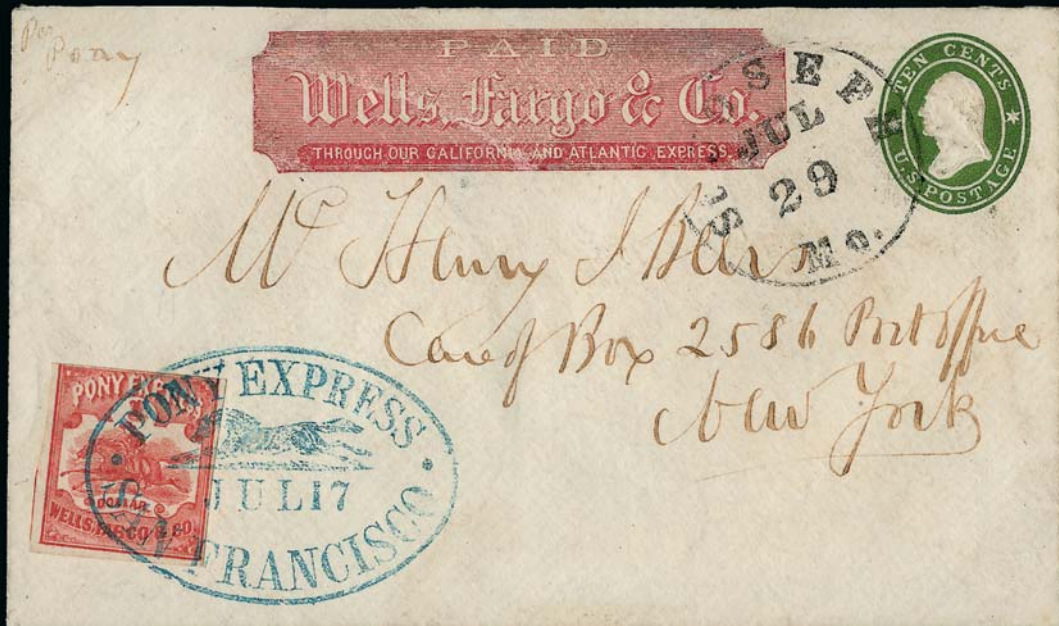 Per
Pony
PAID
Wells, Fargo & Co.
THROUGH OUR CALIFORNIA AND ATLANTIC EXPRESS.
TEN CENTS
U.S. POSTAGE
ST JOSEPH
JUL
29
Mo.
Mr Henry J
Care of Box 2586 Post Office
New York
PONY EXPRESS
DOLLAR
WELLS, FARGO & CO.
PONY EXPRESS
JUL 17
SAN FRANCISCO